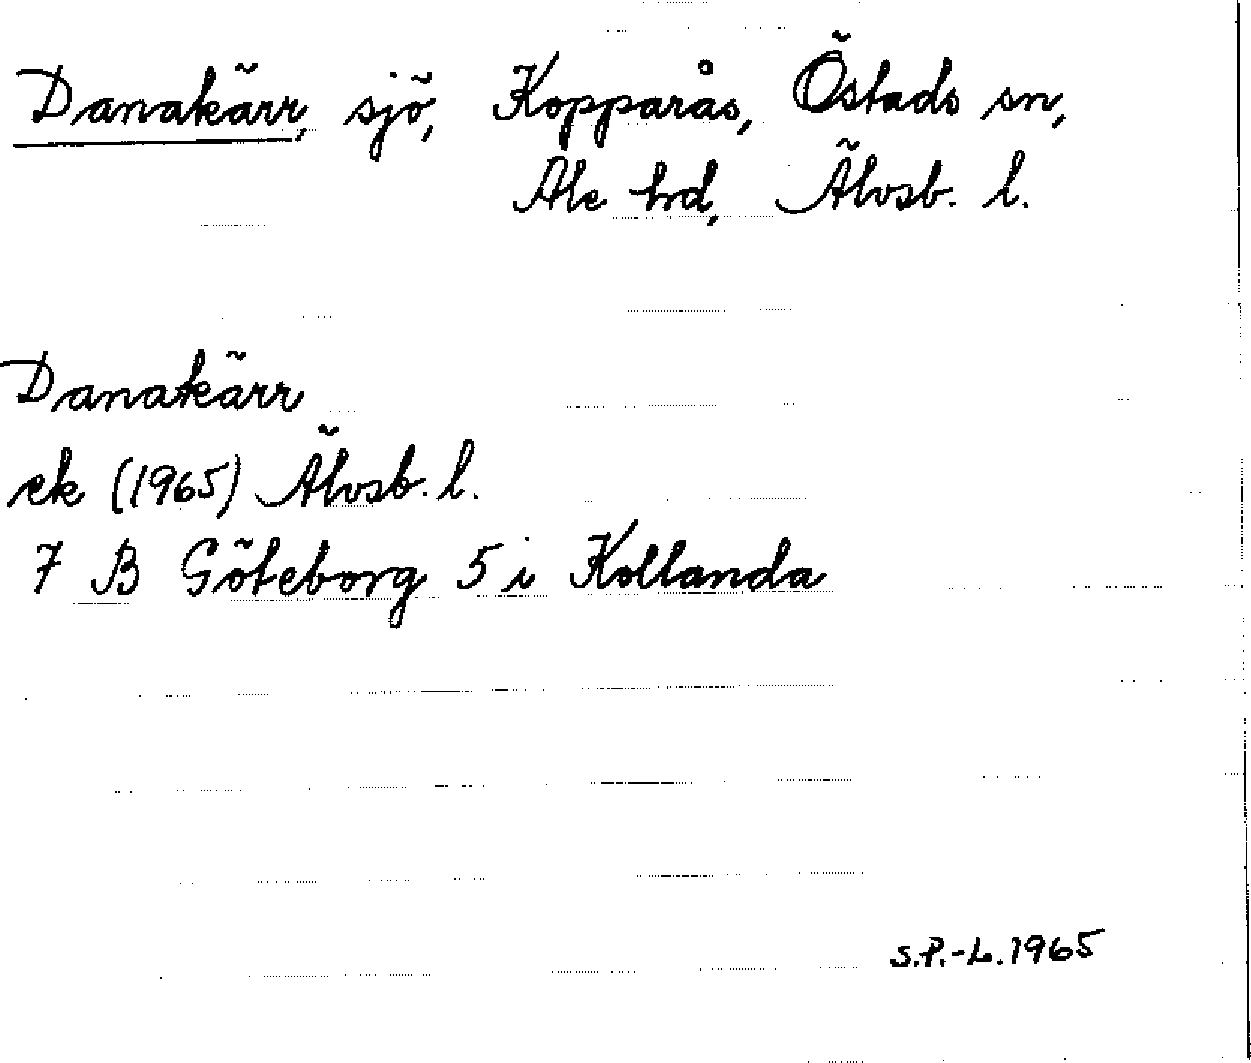 Danakärr, sjö, Kopparås, Östads sn,
Ale hrd, Älvsb. l.
Danakärr
ek (1965) Älvsb. l.
7 B Göteborg 5 i Kollanda
S.P.-L. 1965